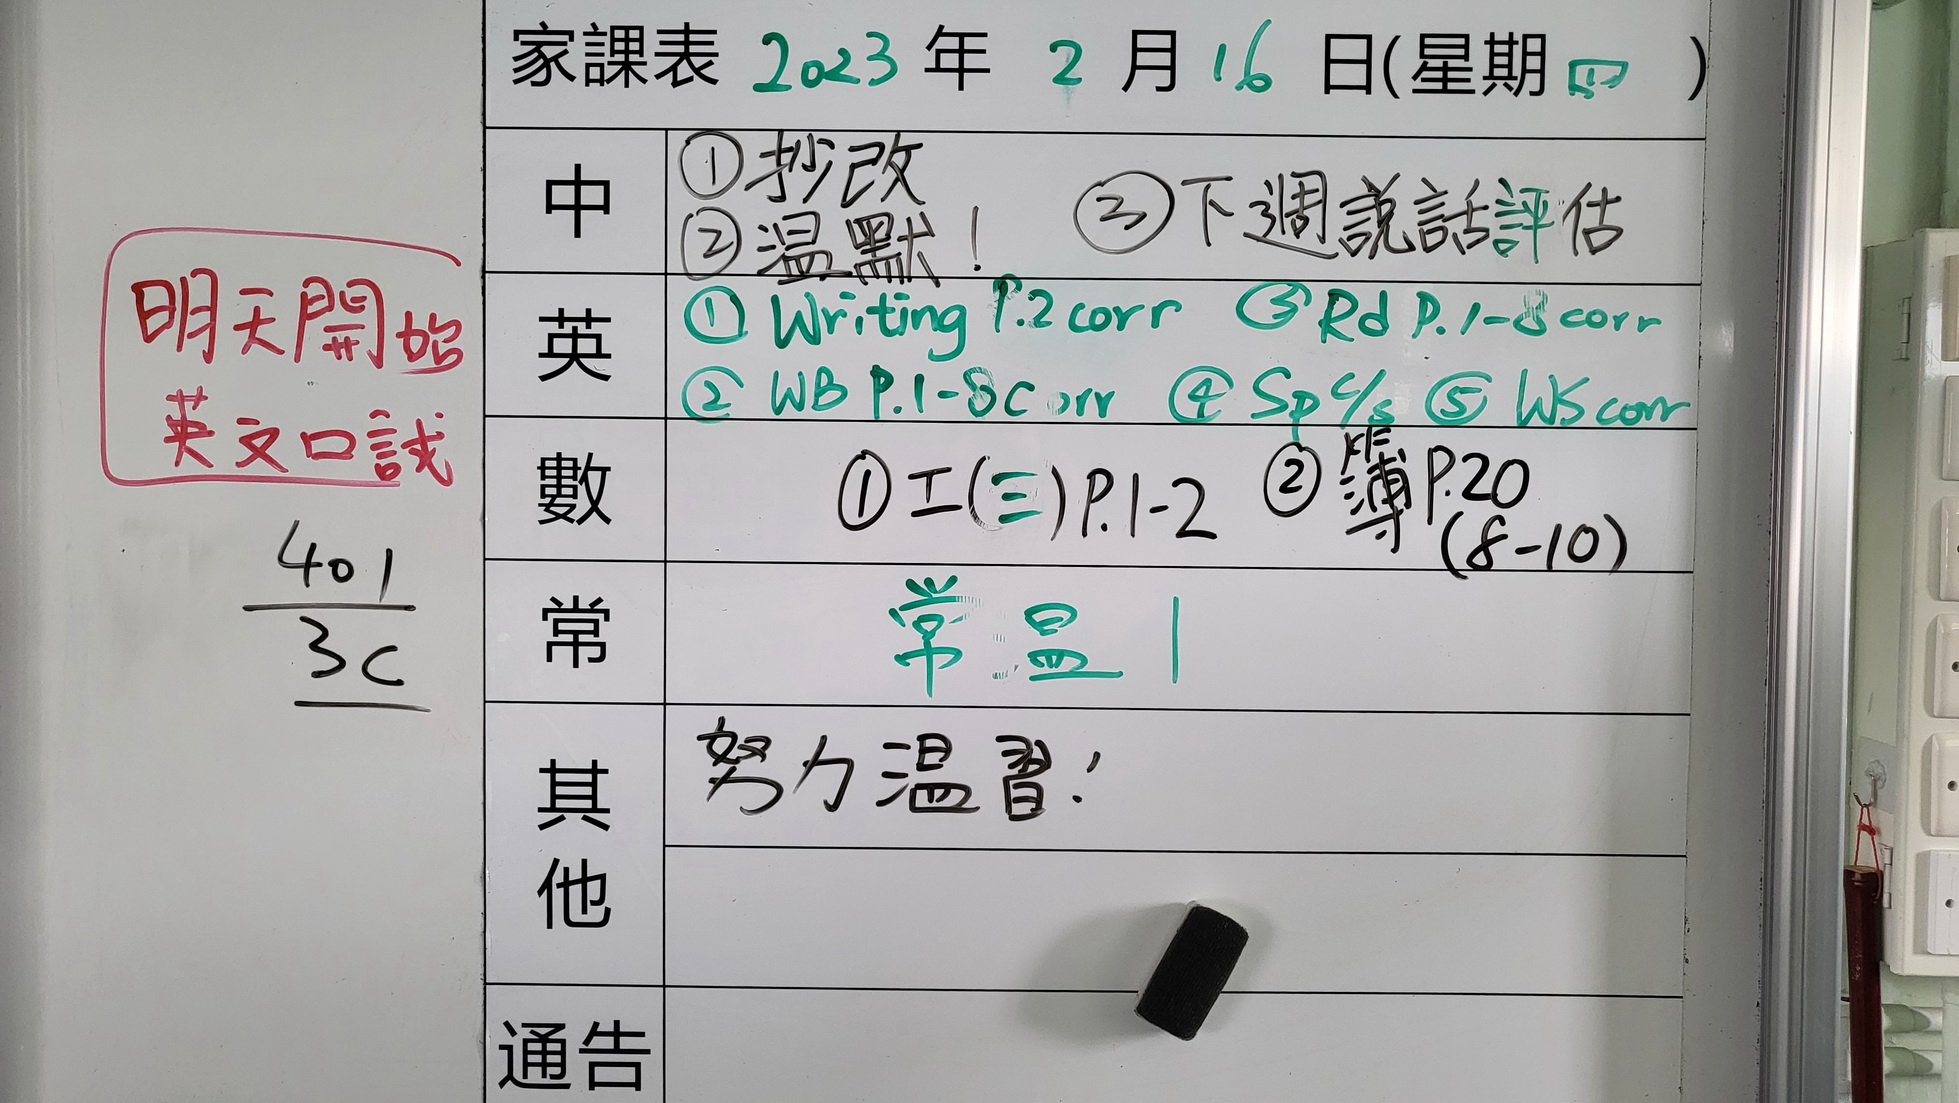 家課表 2023 年 2 月 16 日(星期四)
中
①抄改
②温默!
③下週説話評估
英
① Writing P.2 corr ③ Rd P.1-8 corr
② WB P.1-8 corr ④ Sp c/s ⑤ WS corr
數
①工(三)P.1-2 ②簿P.20
(8-10)
常
常温1
其他
努力温習!
通告
明天開始
英文口試
401
3C